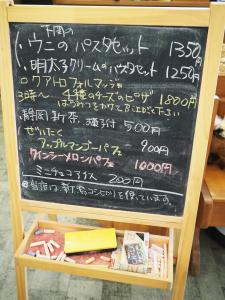 下関の
ウニのパスタセット 1350円
明太子クリームのパスタセット 1250円
クアトロフォルマッジョ
3時〜 4種のチーズのピザ 1800円
はちみつをかけてお召し上がり下さい
静岡新茶、種子付 500円
ぜいたく
アップルマンゴーパフェ 900円
クインシーメロンパフェ 1000円
ミニチョコアイス 200円
当店は新潟コシヒカリを使っています。